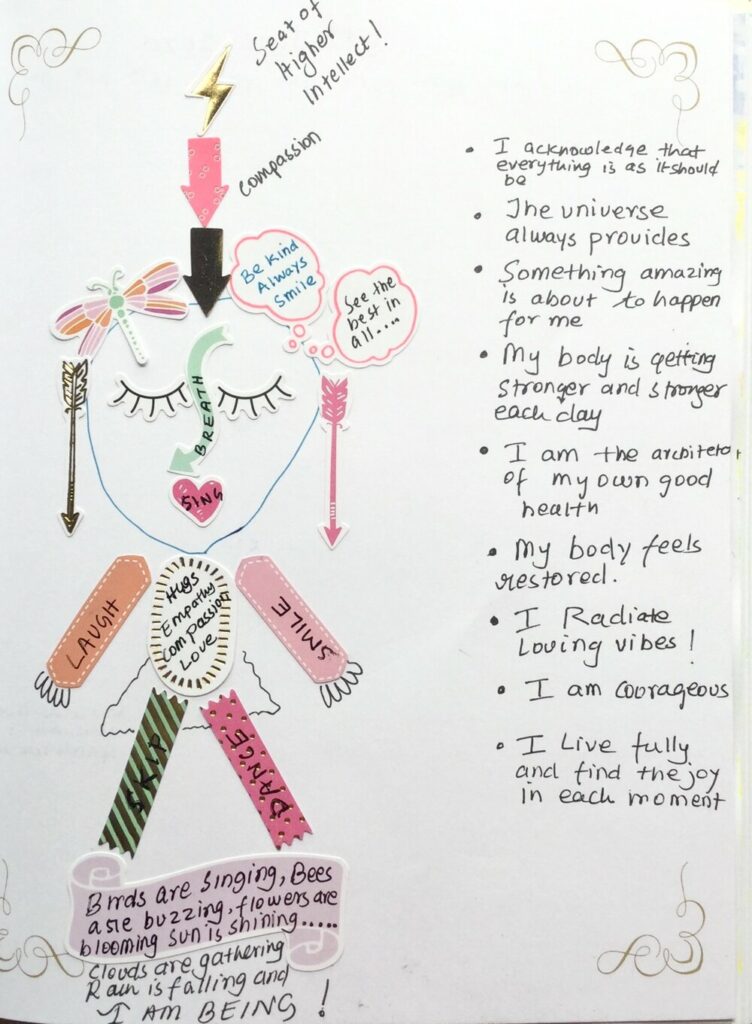 Seat of
Higher
Intellect!
compassion
Be Kind
Always
Smile
See the
best in
all....
BREATH
SING
LAUGH
Hugs
Empathy
Compassion
Love
SMILE
SKIP
DANCE
Birds are singing, Bees
are buzzing, flowers are
blooming sun is shining.....
Clouds are gathering
Rain is falling and
I AM BEING !
• I acknowledge that
everything is as it should
be
• The universe
always provides
• Something amazing
is about to happen
for me
• My body is getting
stronger and stronger
each day
• I am the architect
of my own good
health
• My body feels
restored.
• I Radiate
Loving vibes!
• I am courageous
• I Live fully
and find the joy
in each moment